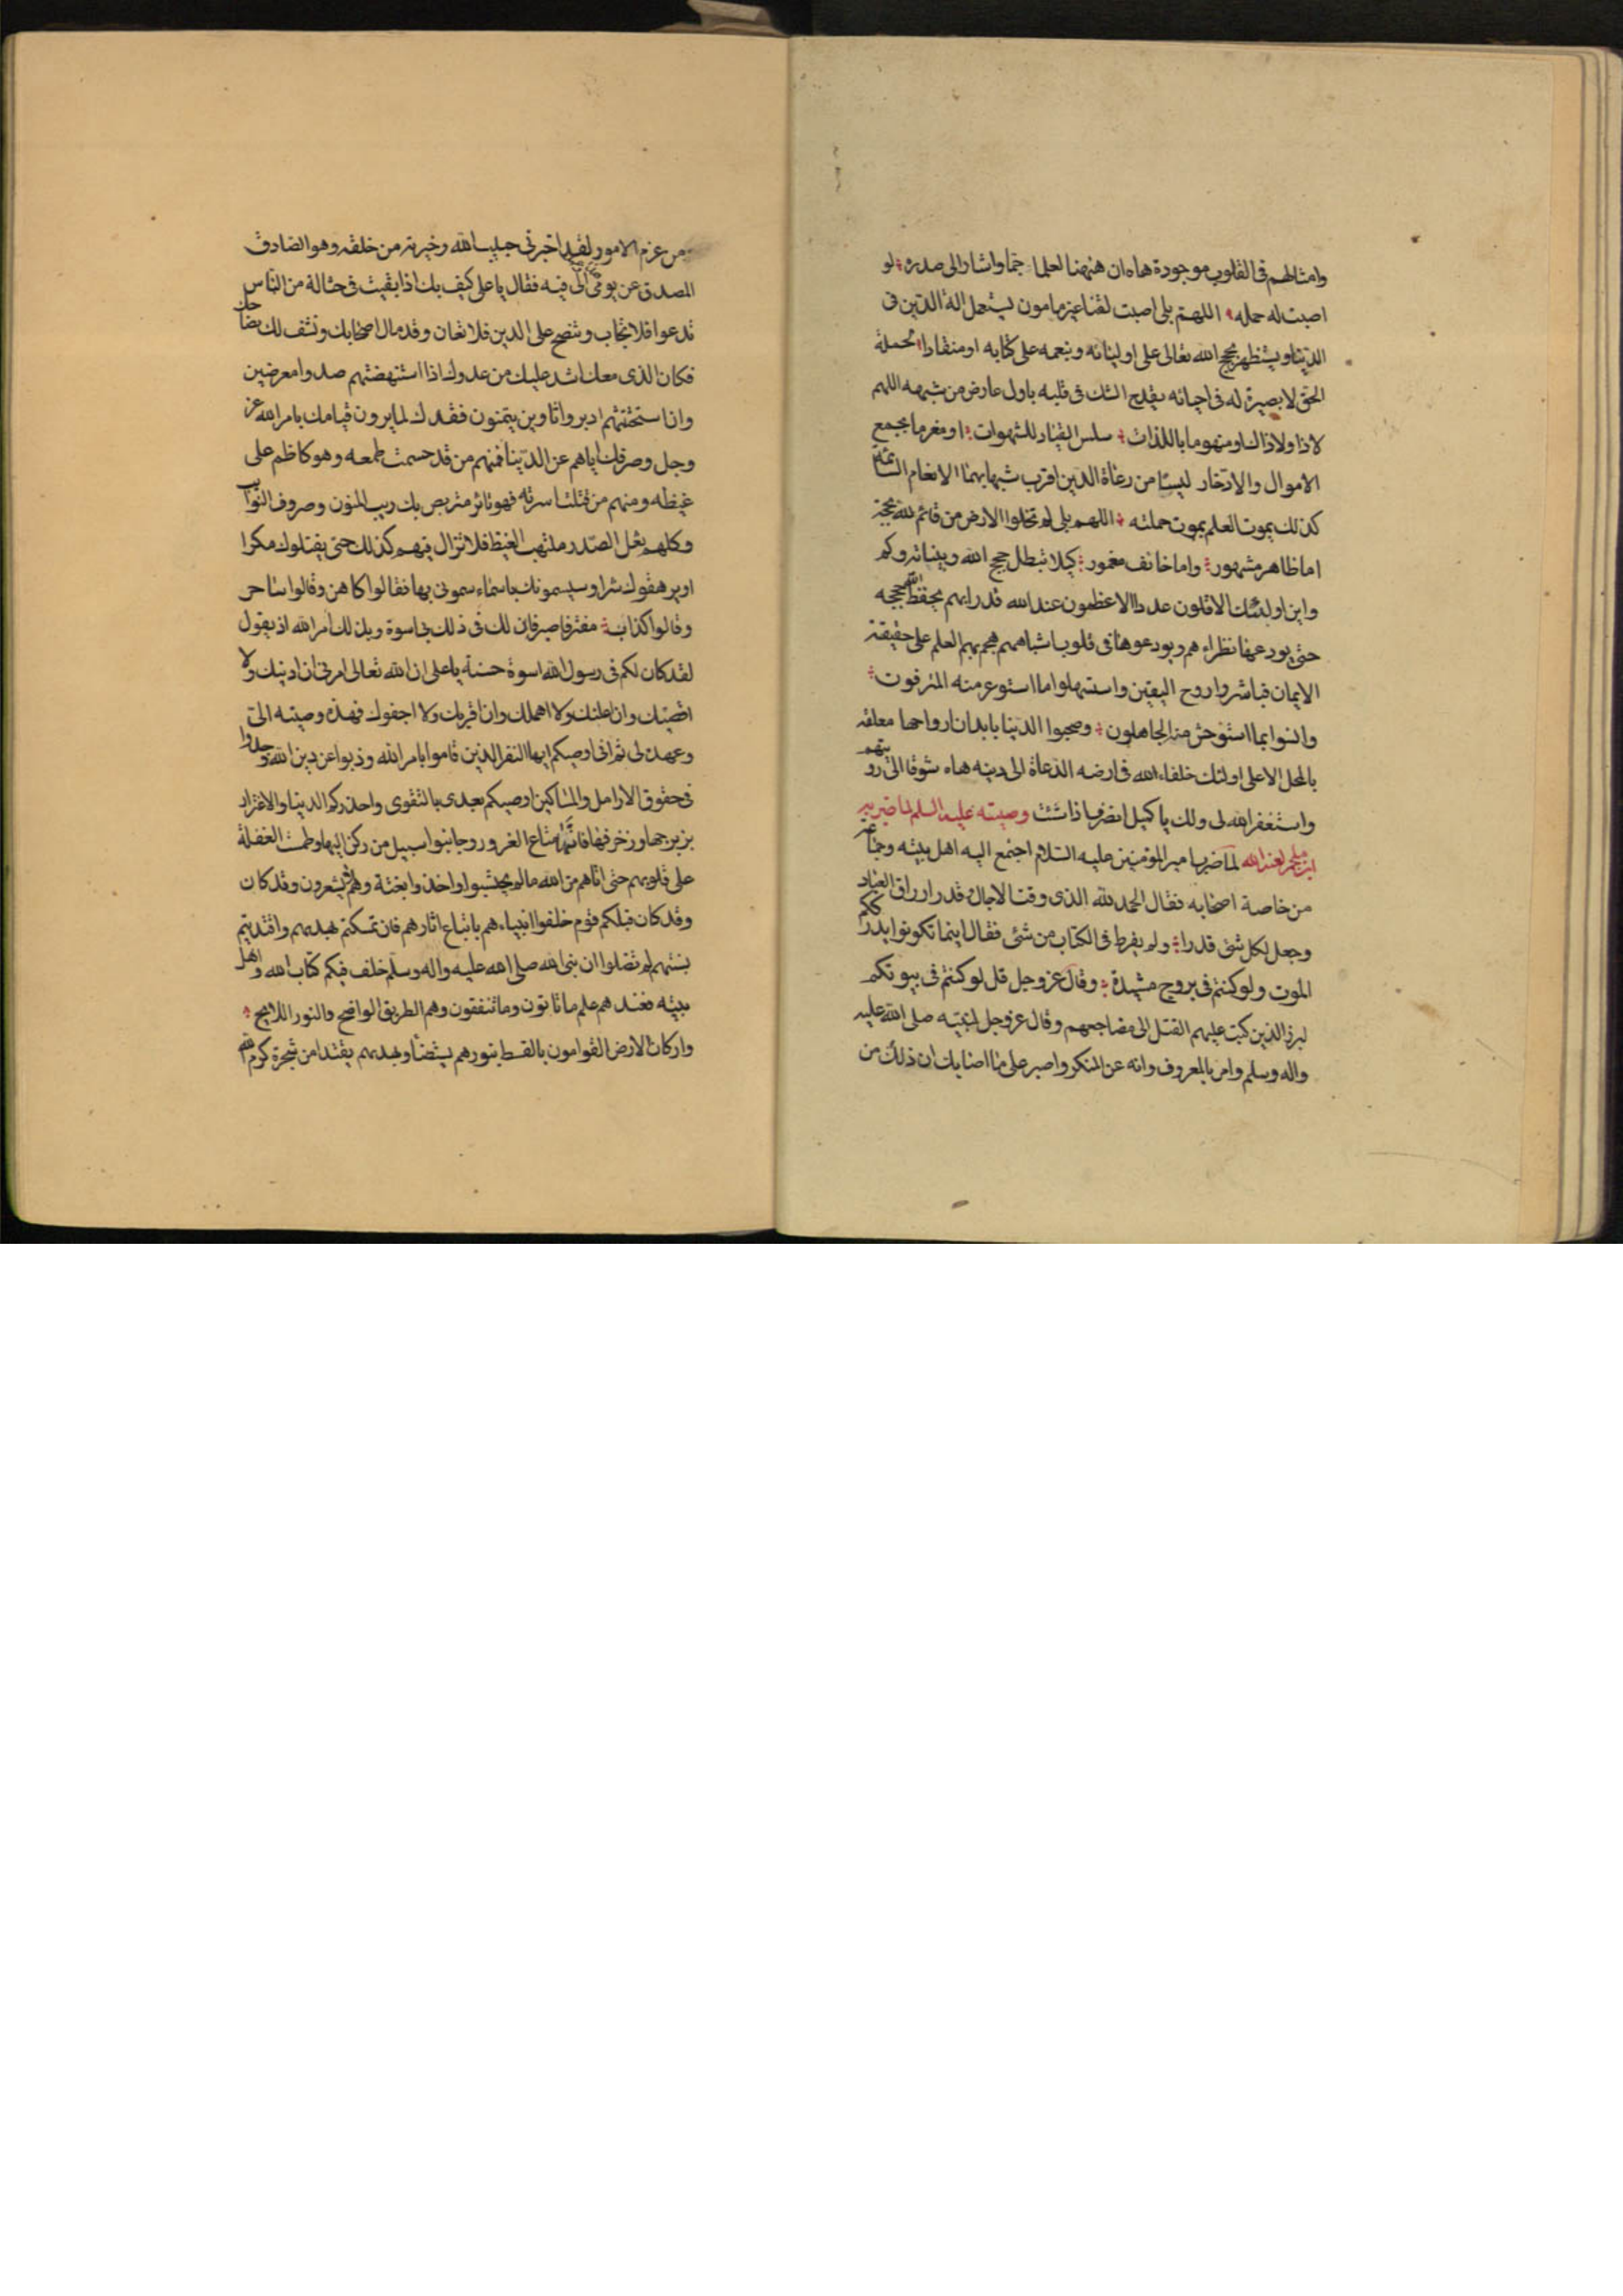 وامثالهم فى القلوب موجودة هاه ان ههنا لعلما جما واشار الى صدره لو
اصبت له حمله اللهم بلى اصبت لقنا غير مامون يستعمل الة الدين فى
الدنيا ويستظهر بحجج الله تعالى على اوليائه وبنعمه على كتابه او منقادا لحملة
الحق لا بصيرة له فى احيائه يقدح الشك فى قلبه باول عارض من شبهه اللهم
لا ذا ولا ذاك او منهوما باللذات سلس القياد للشهوات او مغرما بجمع
الاموال والادخار ليسا من رعاة الدين اقرب شبها بهما الانعام السائمة
كذلك يموت العلم بموت حملته اللهم بلى لم تخلوا الارض من قائم لله بحجة
اما ظاهر مشهور واما خائف مغمور كيلا تبطل حجج الله وبيناته وكم
واين اولئك الاقلون عددا الاعظمون عند الله قدرا بهم يحفظ الله حججه
حتى يودعها نظراءهم ويودعوها فى قلوب اشباههم هجم بهم العلم على حقيقة
الايمان فباشروا روح اليقين واستسهلوا ما استوعر منه المترفون
وانسوا بما استوحش منه الجاهلون وصحبوا الدنيا بابدان ارواحها معلقة
بالمحل الاعلى اولئك خلفاء الله فى ارضه الدعاة الى دينه هاه شوقا الى رؤيتهم
واستغفر الله لى ولك يا كميل انصرف اذا شئت وصيته عليه السلم لما ضربه
ابن ملجم لعنه الله لما ضرب امير المؤمنين عليه السلام اجتمع اليه اهل بيته وجماعة
من خاصة اصحابه فقال الحمد لله الذى وقت الاجال وقدر ارزاق العباد
وجعل لكل شئ قدرا ولم يفرط فى الكتاب من شئ فقال اينما تكونوا يدرككم
الموت ولو كنتم فى بروج مشيدة وقال عز وجل قل لو كنتم فى بيوتكم
لبرز الذين كتب عليهم القتل الى مضاجعهم وقال عز وجل لنبيه صلى الله عليه
واله وسلم وامر بالمعروف وانه عن المنكر واصبر على ما اصابك ان ذلك من
من عزم الامور لقد اخبرنى حبيب الله وخيرته من خلقه وهو الصادق
المصدق عن يومى الى فيه فقال يا على كيف بك اذا بقيت فى حثالة من الناس
تدعوا فلا تجاب وتنصح على الدين فلا تعان وقد مال اصحابك وشنف لك نصحاك
فكان الذى معك اشد عليك من عدوك اذا استنهضتهم صدوا معرضين
وان استحثثتهم ادبروا نافرين يتمنون فقدك لما يرون قيامك بامر الله عز
وجل وصرفك اياهم عن الدنيا فمنهم من قد حسمت طمعه وهو كاظم على
غيظه ومنهم من قتلت اسرته فهو ثائر متربص بك ريب المنون وصروف النوائب
وكلهم نغل الصدر ملتهب الغيظ فلا تزال فيهم كذلك حتى يقتلوك مكرا
او يرهقوك شرا وسيسمونك باسماء سمونى بها فقالوا كاهن وقالوا ساحر
وقالوا كذاب مفتر فاصبر فان لك فى ذلك بى اسوة وبذلك امر الله اذ يقول
لقد كان لكم فى رسول الله اسوة حسنة يا على ان الله تعالى امرنى ان ادنيك ولا
اقصيك وان اعلمك ولا اهملك وان اقربك ولا اجفوك فهذه وصيته الى
وعهده لى ثم انى اوصيكم ايها النفر الذين قاموا بامر الله وذبوا عن دين الله وجدوا
فى حقوق الارامل والمساكين اوصيكم بعدى بالتقوى واحذركم الدنيا والاغترار
بزبرجها وزخرفها فانها متاع الغرور وجانبوا سبيل من ركن اليها وطمت الغفلة
على قلوبهم حتى اتاهم من الله مالم يحتسبوا واخذوا بغتة وهم لا يشعرون وقد كان
وقد كان قبلكم قوم خلفوا انبياءهم باتباع اثارهم فان تمسكتم بهديهم واقتديتم
بسنتهم لم تضلوا ان نبى الله صلى الله عليه واله وسلم خلف فيكم كتاب الله واهل
بيته فعندهم علم ما تاتون وما تتقون وهم الطريق الواضح والنور اللايح
واركان الارض القوامون بالقسط بنورهم يستضاء وبهديهم يقتدا من شجرة كرم الله